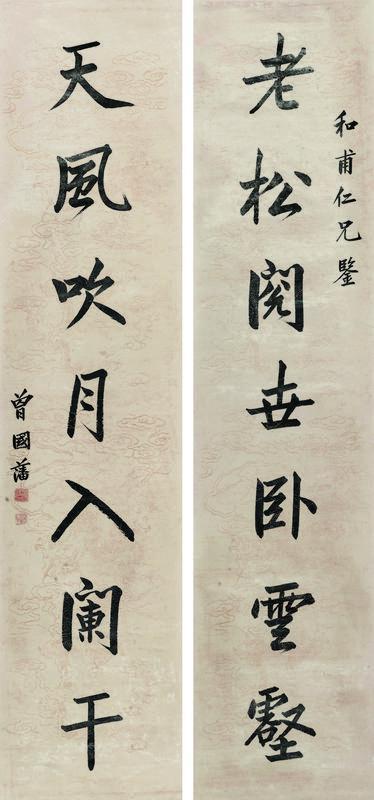 和甫仁兄鑒
老松閱世卧雲壑
天風吹月入闌干
曾國藩